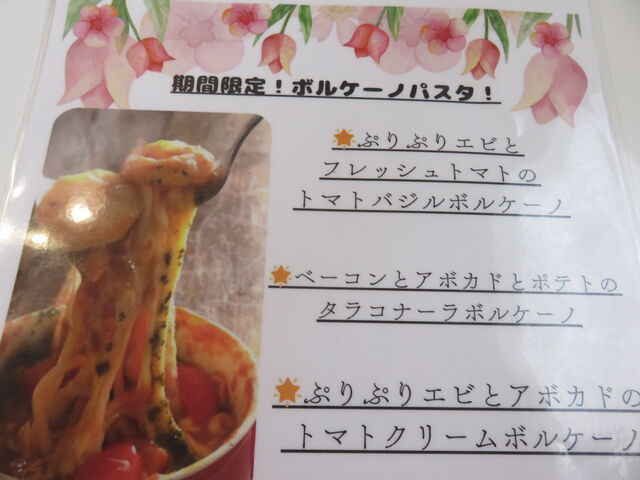 期間限定！ボルケーノパスタ！
ぷりぷりエビと
フレッシュトマトの
トマトバジルボルケーノ
ベーコンとアボカドとポテトの
タラコナーラボルケーノ
ぷりぷりエビとアボカドの
トマトクリームボルケーノ